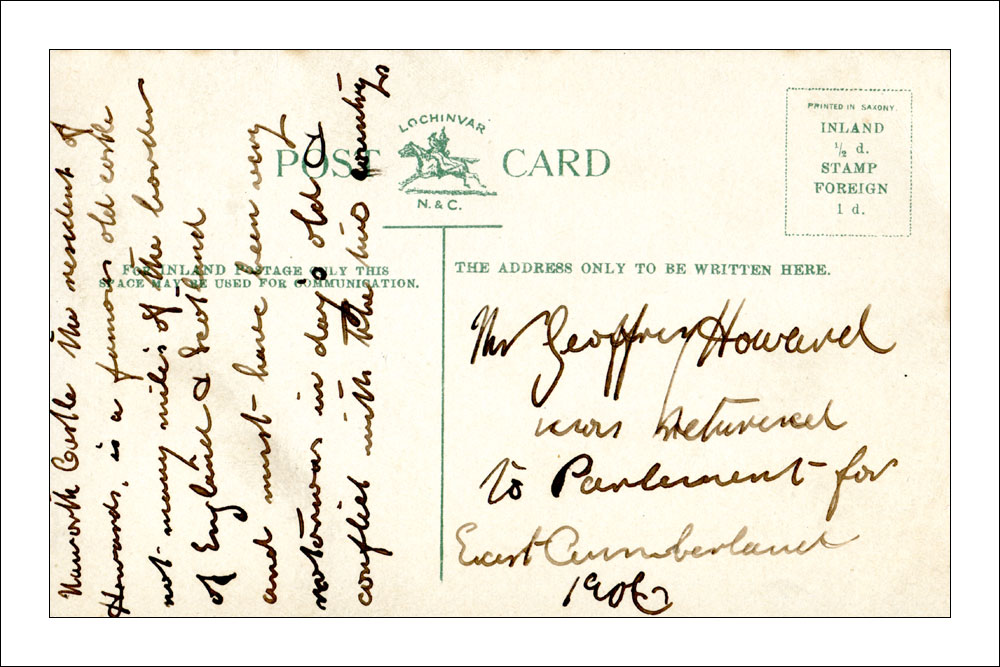 LOCHINVAR
POST CARD
N. & C.
PRINTED IN SAXONY.
INLAND
½ d.
STAMP
FOREIGN
1 d.
FOR INLAND POSTAGE ONLY THIS
SPACE MAY BE USED FOR COMMUNICATION.
THE ADDRESS ONLY TO BE WRITTEN HERE.
Naworth Castle the resident of
Howards, is a famous old castle
not many miles of the border
of England & Scotland
and must have been very
notorious in day's old &
conflict with the two countrys
Mr Geoffrey Howard
was returned
to Parlement for
East Cumberland
1906